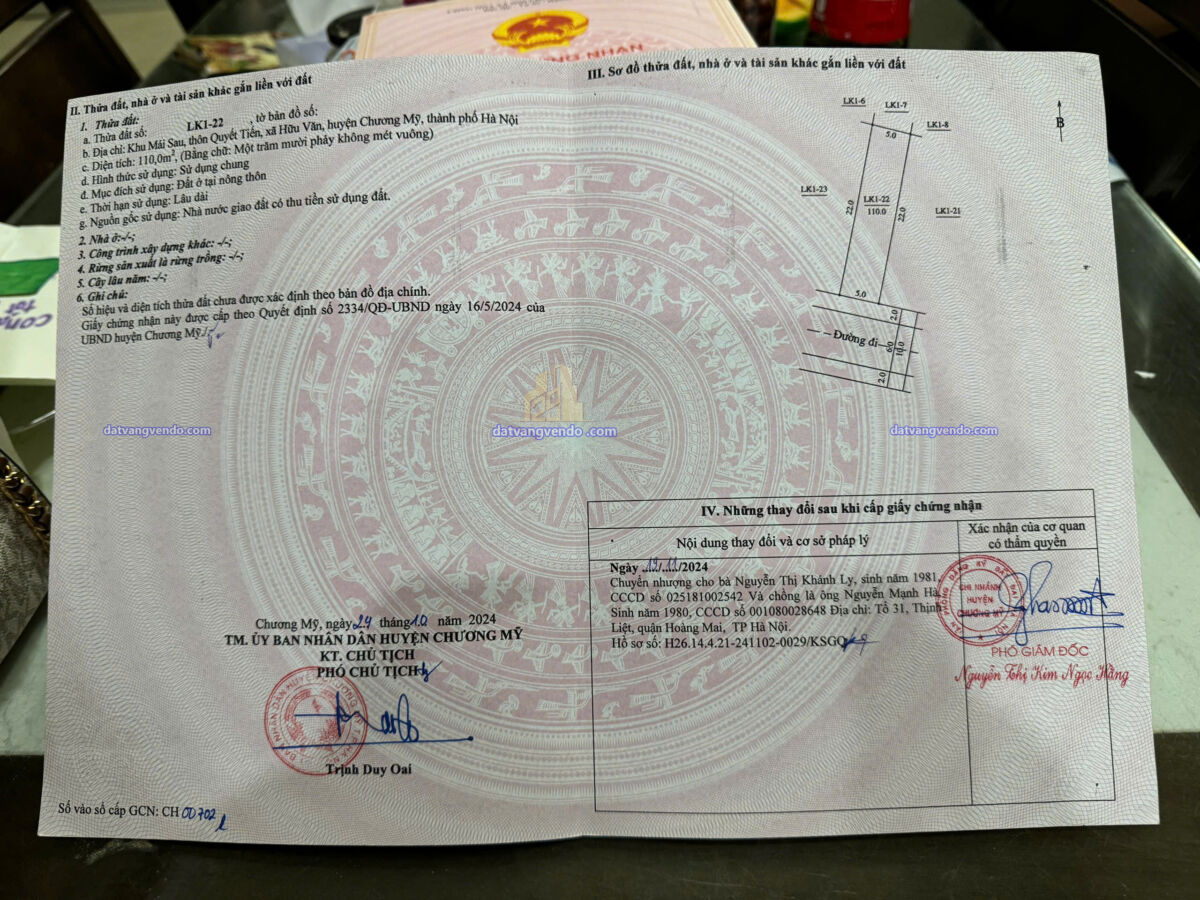 NG NHAN
II. Thửa đất, nhà ở và tài sản khác gắn liền với đất
1. Thửa đất:
a. Thửa đất số: LK1-22 , tờ bản đồ số:
b. Địa chỉ: Khu Mái Sau, thôn Quyết Tiến, xã Hữu Văn, huyện Chương Mỹ, thành phố Hà Nội
c. Diện tích: 110,0m², (Bằng chữ: Một trăm mười phảy không mét vuông)
d. Hình thức sử dụng: Sử dụng chung
đ. Mục đích sử dụng: Đất ở tại nông thôn
e. Thời hạn sử dụng: Lâu dài
g. Nguồn gốc sử dụng: Nhà nước giao đất có thu tiền sử dụng đất.
2. Nhà ở:-/-;
3. Công trình xây dựng khác: -/-;
4. Rừng sản xuất là rừng trồng: -/-;
5. Cây lâu năm: -/-;
6. Ghi chú:
Số hiệu và diện tích thửa đất chưa được xác định theo bản đồ địa chính.
Giấy chứng nhận này được cấp theo Quyết định số 2334/QĐ-UBND ngày 16/5/2024 của
UBND huyện Chương Mỹ./.
Chương Mỹ, ngày 29 tháng 10 năm 2024
TM. ỦY BAN NHÂN DÂN HUYỆN CHƯƠNG MỸ
KT. CHỦ TỊCH
PHÓ CHỦ TỊCH
Trịnh Duy Oai
Số vào sổ cấp GCN: CH 00702
III. Sơ đồ thửa đất, nhà ở và tài sản khác gắn liền với đất
LK1-6
LK1-7
LK1-8
B
5.0
LK1-23
22.0
LK1-22
110.0
22.0
LK1-21
5.0
2.0
Đường đi
6.0
10.0
2.0
datvangvendo.com
datvangvendo.com
datvangvendo.com
IV. Những thay đổi sau khi cấp giấy chứng nhận
Nội dung thay đổi và cơ sở pháp lý
Xác nhận của cơ quan
có thẩm quyền
Ngày ../11/2024
Chuyển nhượng cho bà Nguyễn Thị Khánh Ly, sinh năm 1981,
CCCD số 025181002542 Và chồng là ông Nguyễn Mạnh Hà,
Sinh năm 1980, CCCD số 001080028648 Địa chỉ: Tổ 31, Thịnh
Liệt, quận Hoàng Mai, TP Hà Nội.
Hồ sơ số: H26.14.4.21-241102-0029/KSGQ
CHI NHÁNH
HUYỆN
CHƯƠNG MỸ
PHÓ GIÁM ĐỐC
Nguyễn Thị Kim Ngọc Hằng